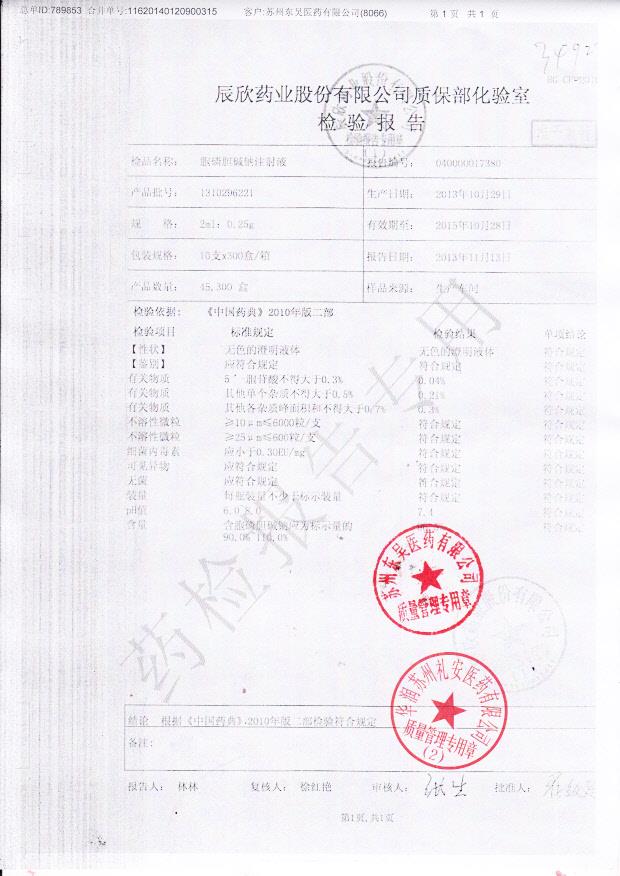 总单ID:789853 合并单号:11620140120900315 客户:苏州东吴医药有限公司(8066) 第1页 共1页
辰欣药业股份有限公司质保部化验室
检验报告
检品名称: 胞磷胆碱钠注射液 报告编号: 040000017380
产品批号: 1310296221 生产日期: 2013年10月29日
规 格: 2ml:0.25g 有效期至: 2015年10月28日
包装规格: 10支x300盒/箱 报告日期: 2013年11月13日
产品数量: 45,300 盒 样品来源: 生产车间
检验依据: 《中国药典》2010年版二部
检验项目 标准规定 检验结果 单项结论
【性状】 无色的澄明液体 无色的澄明液体 符合规定
【鉴别】 应符合规定 符合规定 符合规定
有关物质 5'胞苷酸不得大于0.3% 0.04% 符合规定
有关物质 其他单个杂质不得大于0.5% 0.21% 符合规定
有关物质 其他各杂质峰面积和不得大于0.7% 0.3% 符合规定
不溶性微粒 ≥10μm≤6000粒/支 符合规定 符合规定
不溶性微粒 ≥25μm≤600粒/支 符合规定 符合规定
细菌内毒素 应小于0.30EU/mg 符合规定 符合规定
可见异物 应符合规定 符合规定 符合规定
无菌 应符合规定 符合规定 符合规定
装量 每瓶装量不少于标示装量 符合规定 符合规定
pH值 6.0 8.0 7.4 符合规定
含量 含胞磷胆碱钠应为标示量的 符合规定
90.0% 110.0%
药检报告专用
苏州东吴医药有限公司
质量管理专用章
华润苏州礼安医药有限公司
质量管理专用章
(2)
结论 根据《中国药典》2010年版二部检验符合规定
备注:
报告人: 林林 复核人: 徐红艳 审核人: 批准人:
第1页,共1页